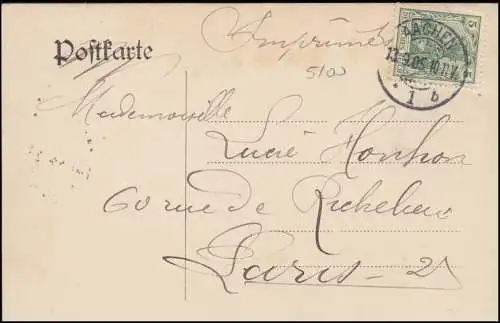 Postkarte
Imprimé
5/00
5
AACHEN
13.9.05.10-11V.
* 1 b
Mademoiselle
Lucie Honhon
60 rue de Richelieu
Paris - 2